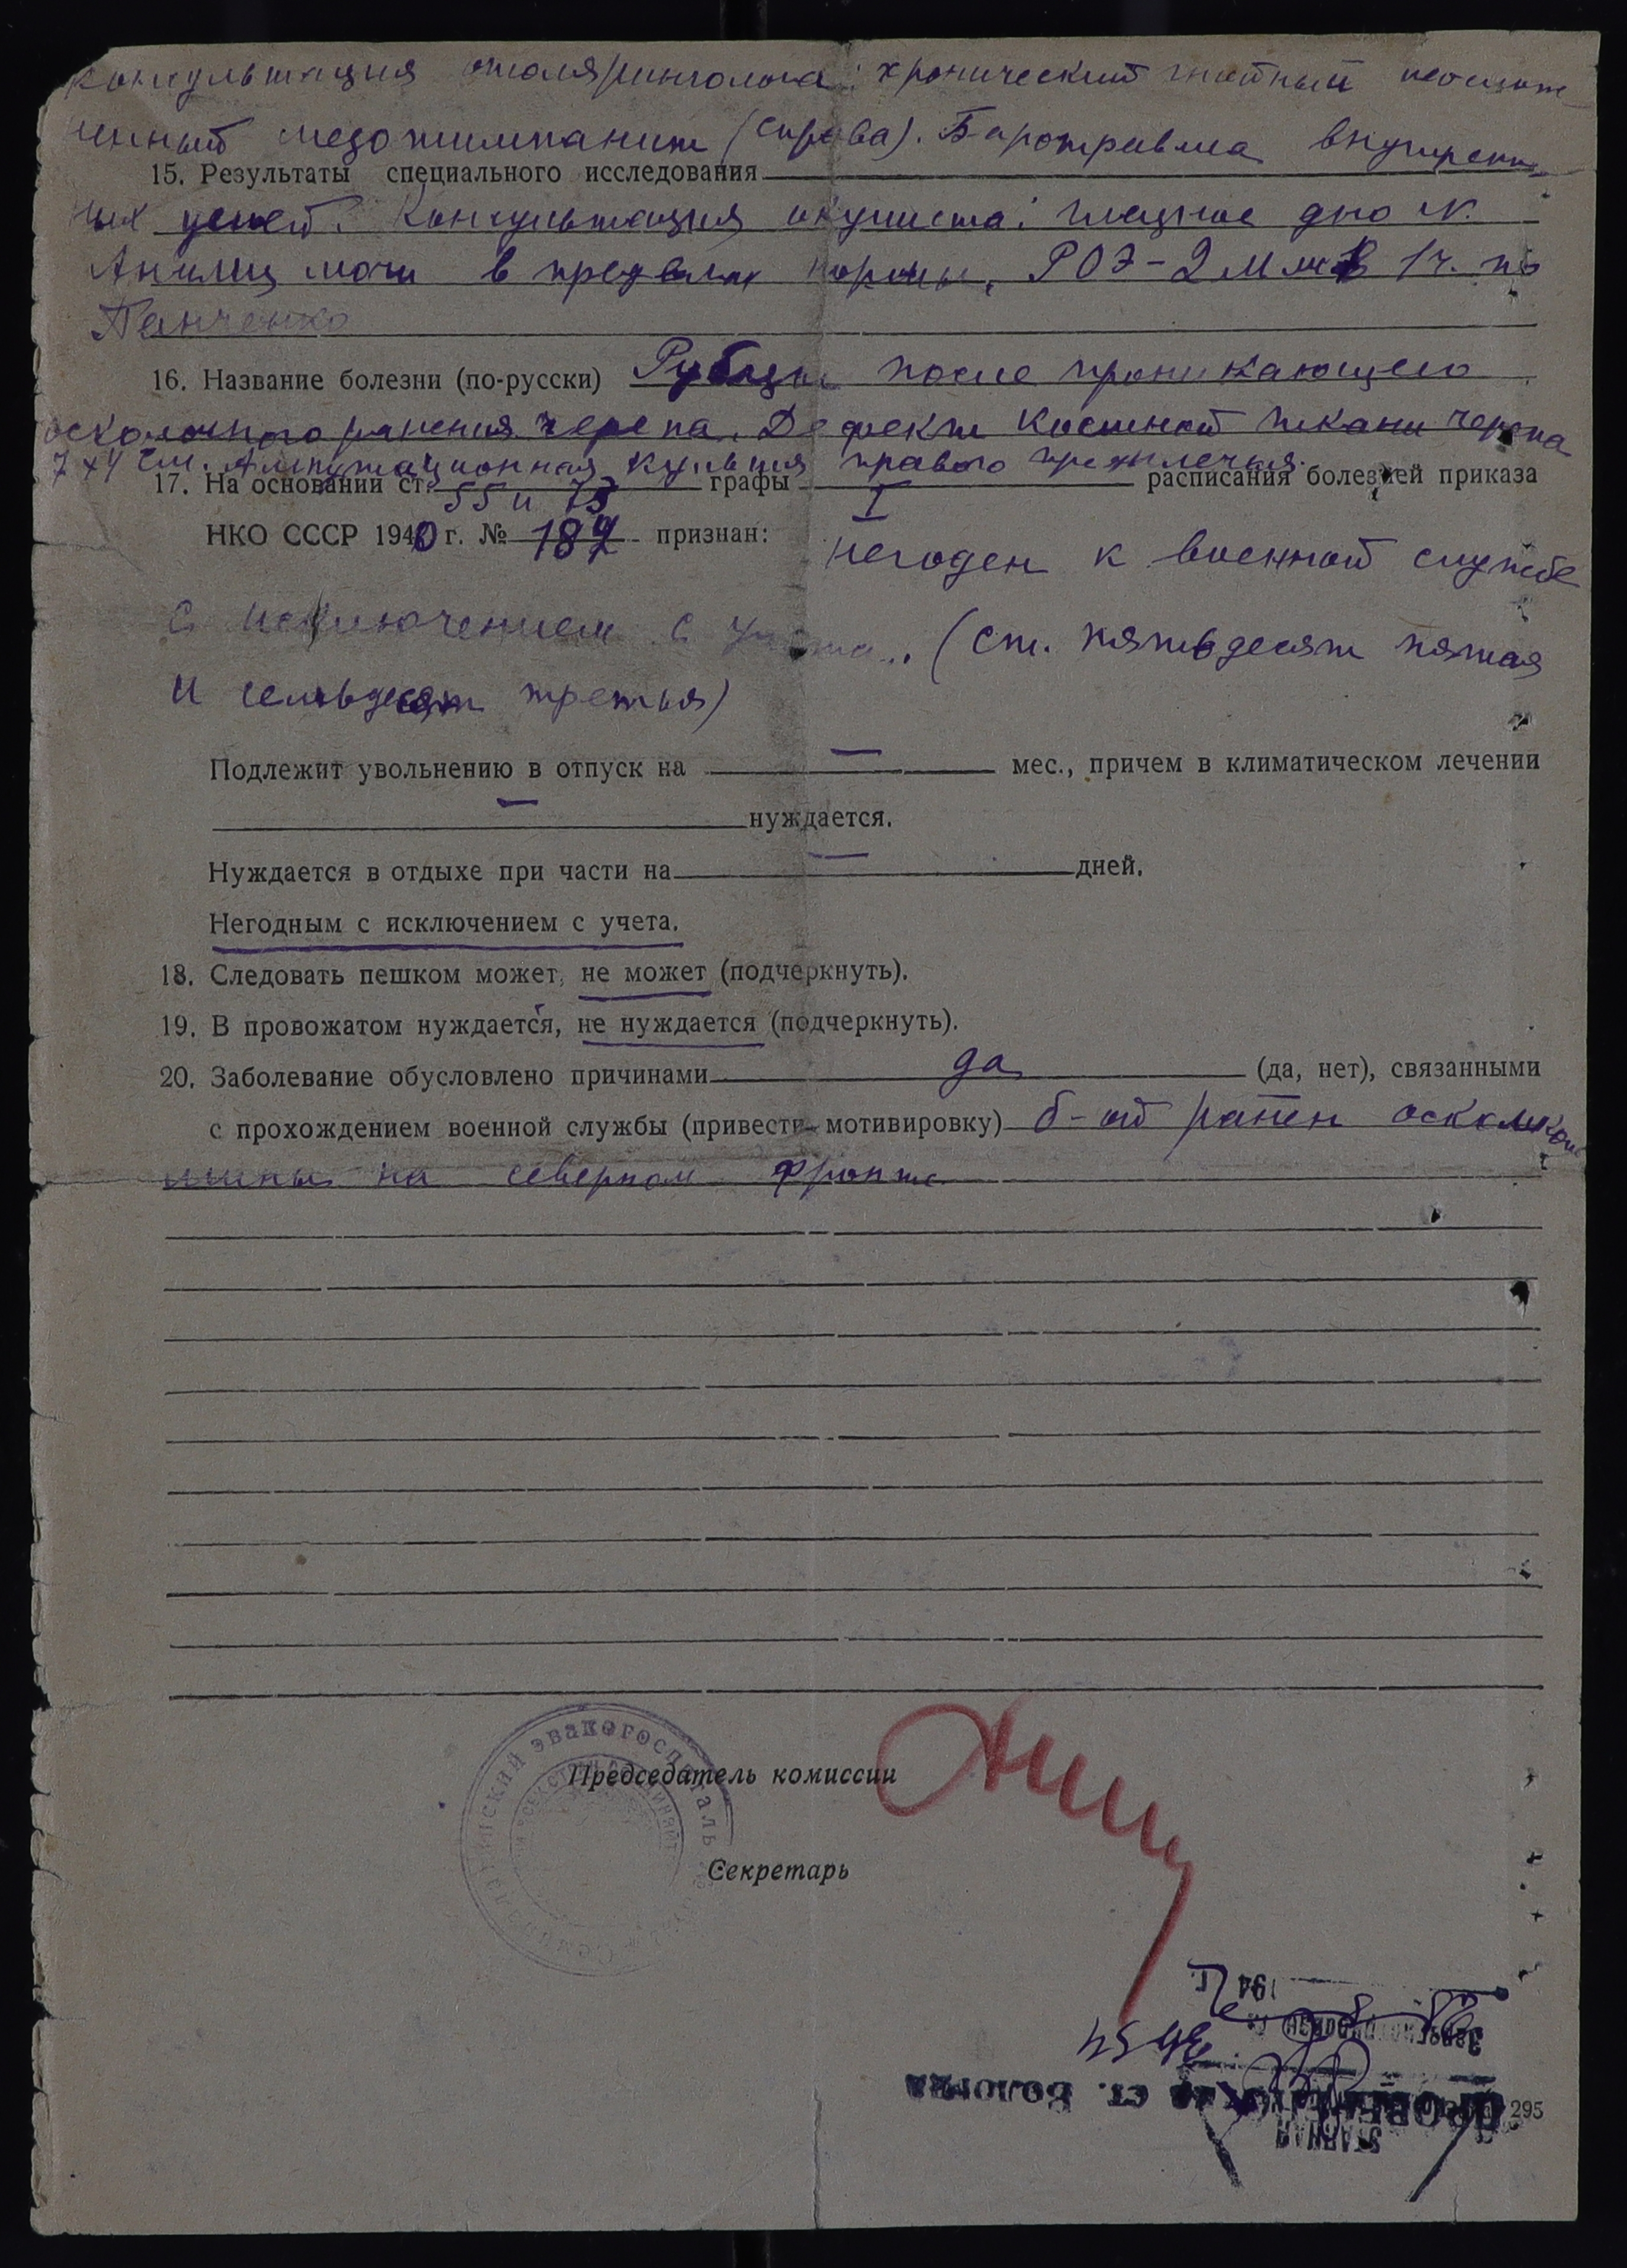 консультация отоляринголога: хронический гнойный неослож-
ненный мезотимпанит (справа). Баротравма внутрен-
15. Результаты специального исследования
них ушей. Консультация окулиста: глазное дно N.
Анализ мочи в пределах нормы, РОЭ-2 мм в 1ч. по
Панченко
16. Название болезни (по-русски) Рубцы после проникающего
осколочного ранения черепа. Дефект костной ткани черепа
7х4 см. Ампутационная культя правого предплечья.
17. На основании ст. 55 и 73 графы I расписания болезней приказа
НКО СССР 1940 г. № 184 признан: негоден к военной службе
с исключением с учета. (ст. пятьдесят пятая
и семьдесят третья)
Подлежит увольнению в отпуск на — мес., причем в климатическом лечении
— нуждается.
Нуждается в отдыхе при части на — дней.
Негодным с исключением с учета.
18. Следовать пешком может, не может (подчеркнуть).
19. В провожатом нуждается, не нуждается (подчеркнуть).
20. Заболевание обусловлено причинами да (да, нет), связанными
с прохождением военной службы (привести мотивировку) б-ой ранен осколком
мины на северном фронте
эвакогоспиталь
Председатель комиссии
Секретарь
194 г.
ст. Вологда
295